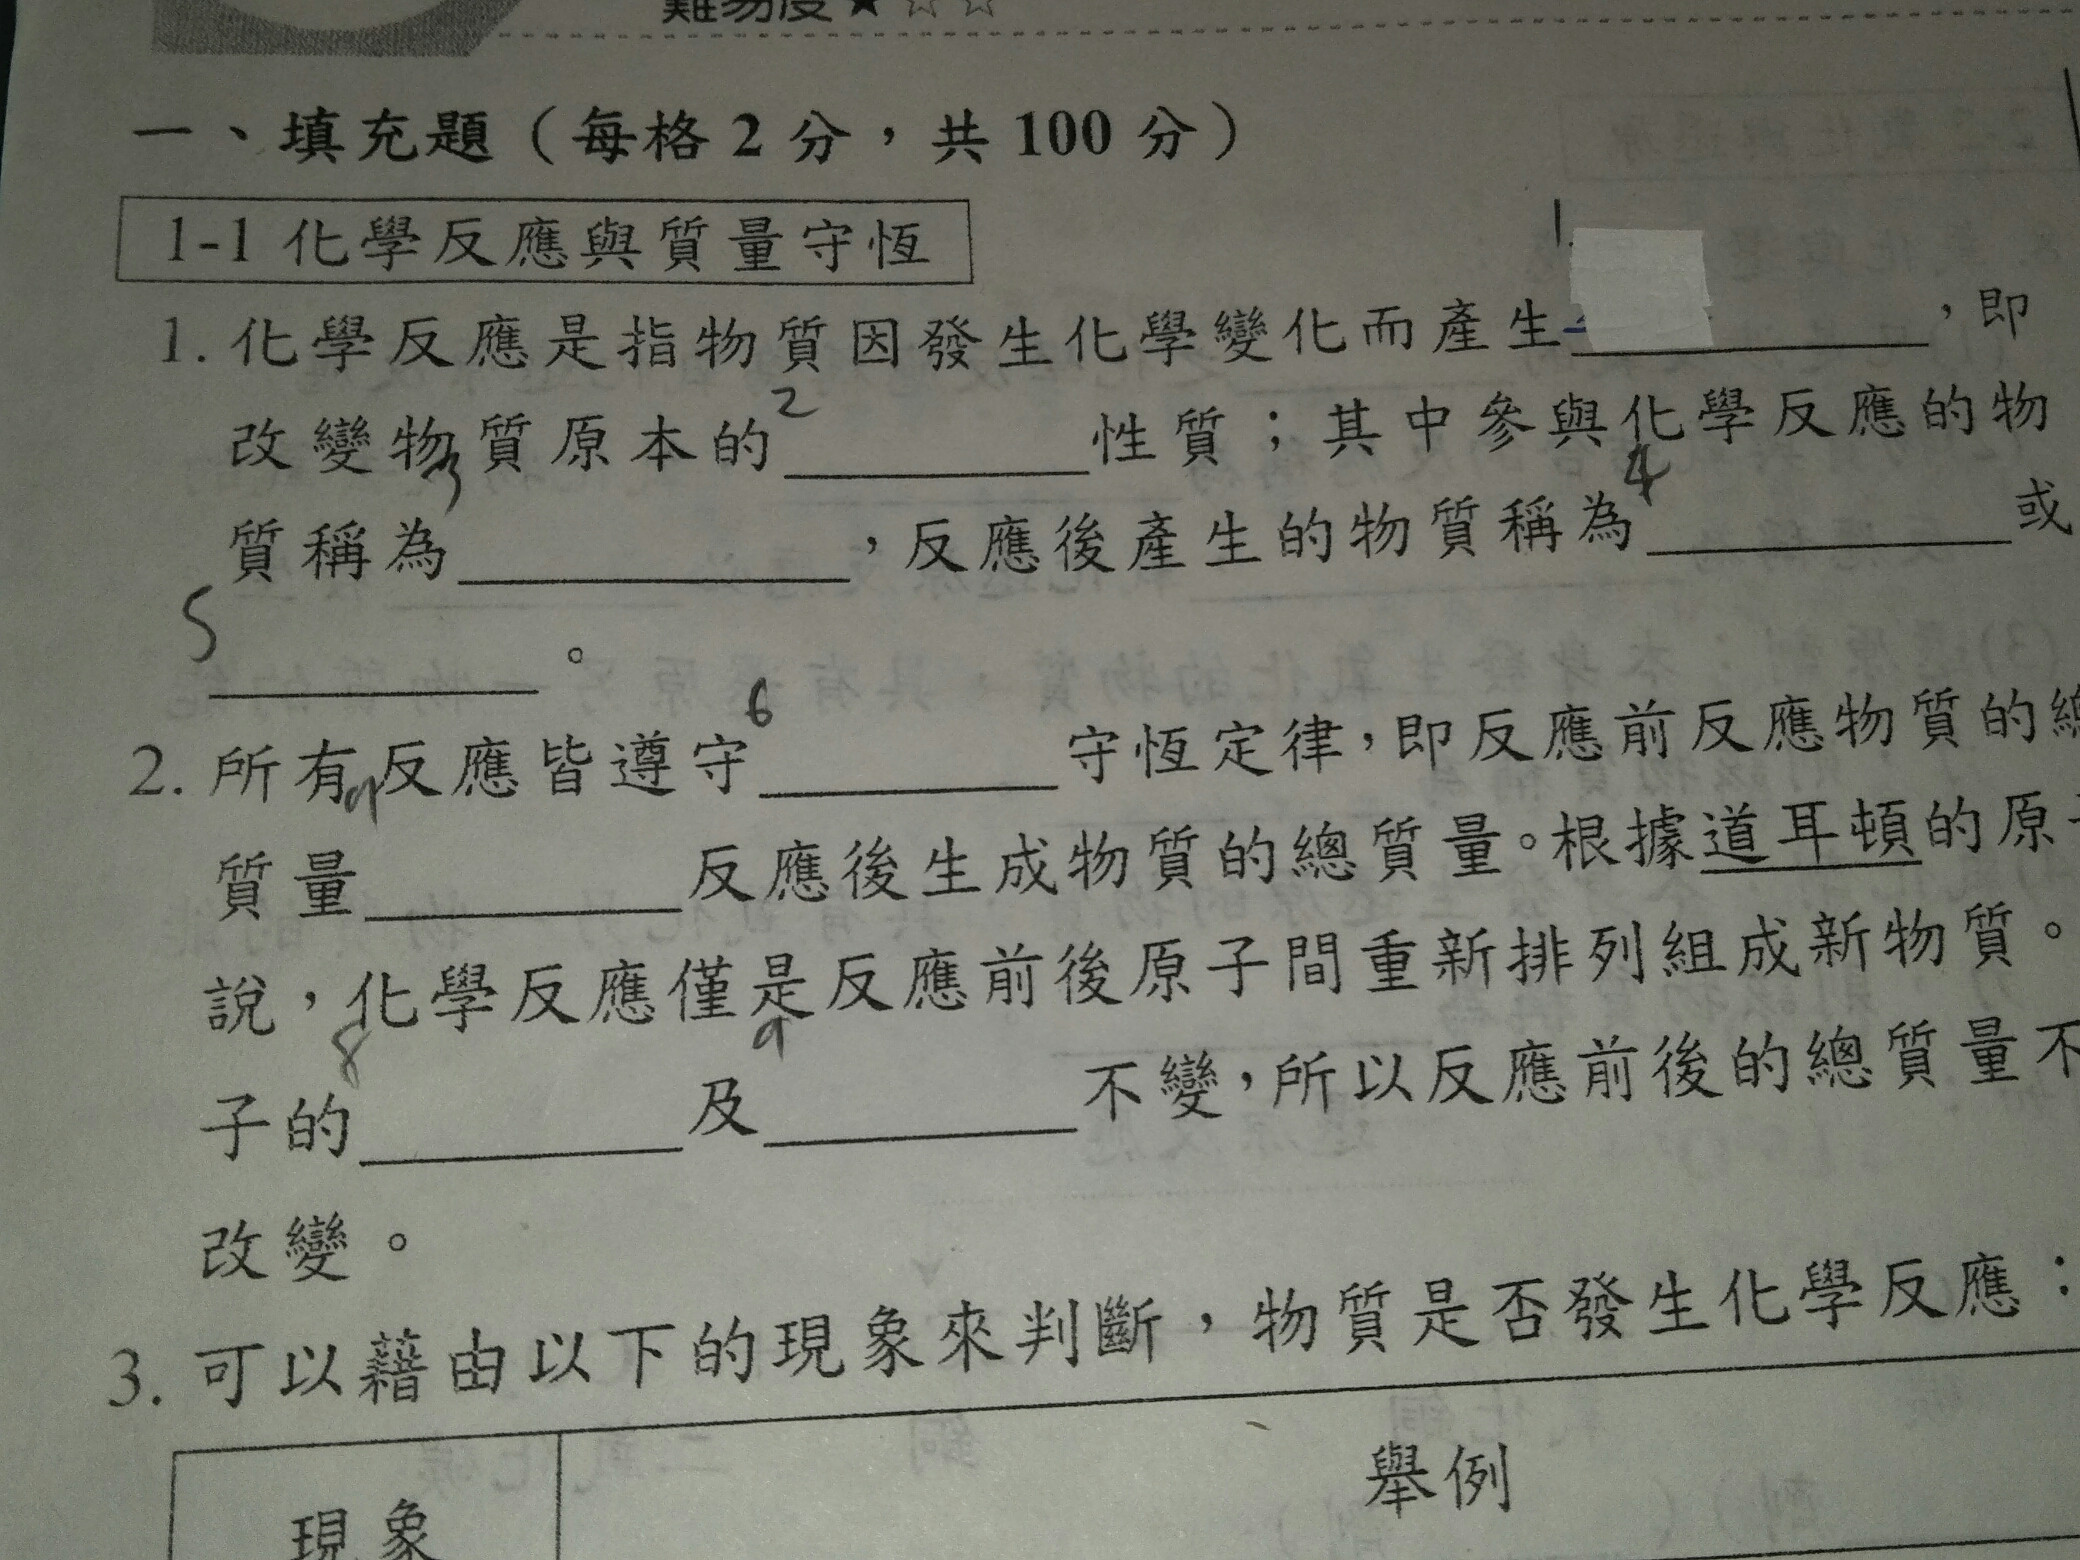 難易度★☆☆
一、填充題（每格2分，共100分）
1-1 化學反應與質量守恆
1.
1. 化學反應是指物質因發生化學變化而產生＿＿＿＿，即
2
改變物質原本的＿＿＿＿性質；其中參與化學反應的物
3 4
質稱為＿＿＿＿，反應後產生的物質稱為＿＿＿＿或
5
＿＿＿＿。
6
2. 所有反應皆遵守＿＿＿＿守恆定律，即反應前反應物質的總
質量＿＿＿＿反應後生成物質的總質量。根據道耳頓的原
說，化學反應僅是反應前後原子間重新排列組成新物質。
8 9
子的＿＿＿＿及＿＿＿＿不變，所以反應前後的總質量不
改變。
3. 可以藉由以下的現象來判斷，物質是否發生化學反應：
現象 舉例